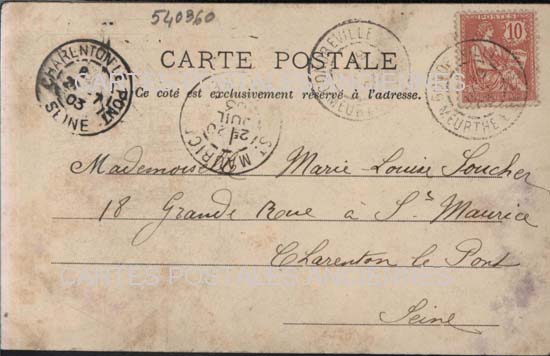 540960
CARTE POSTALE
Ce côté est exclusivement réservé à l'adresse.
CHARENTON-LE-PONT
03
SEINE
ST MAURICE
JUIL
03
10
MEURTHE
Mademoiselle Marie Louise Soucher
18 Grande Rue à St Maurice
Charenton le Pont
Seine
CARTES POSTALES ANCIENNES